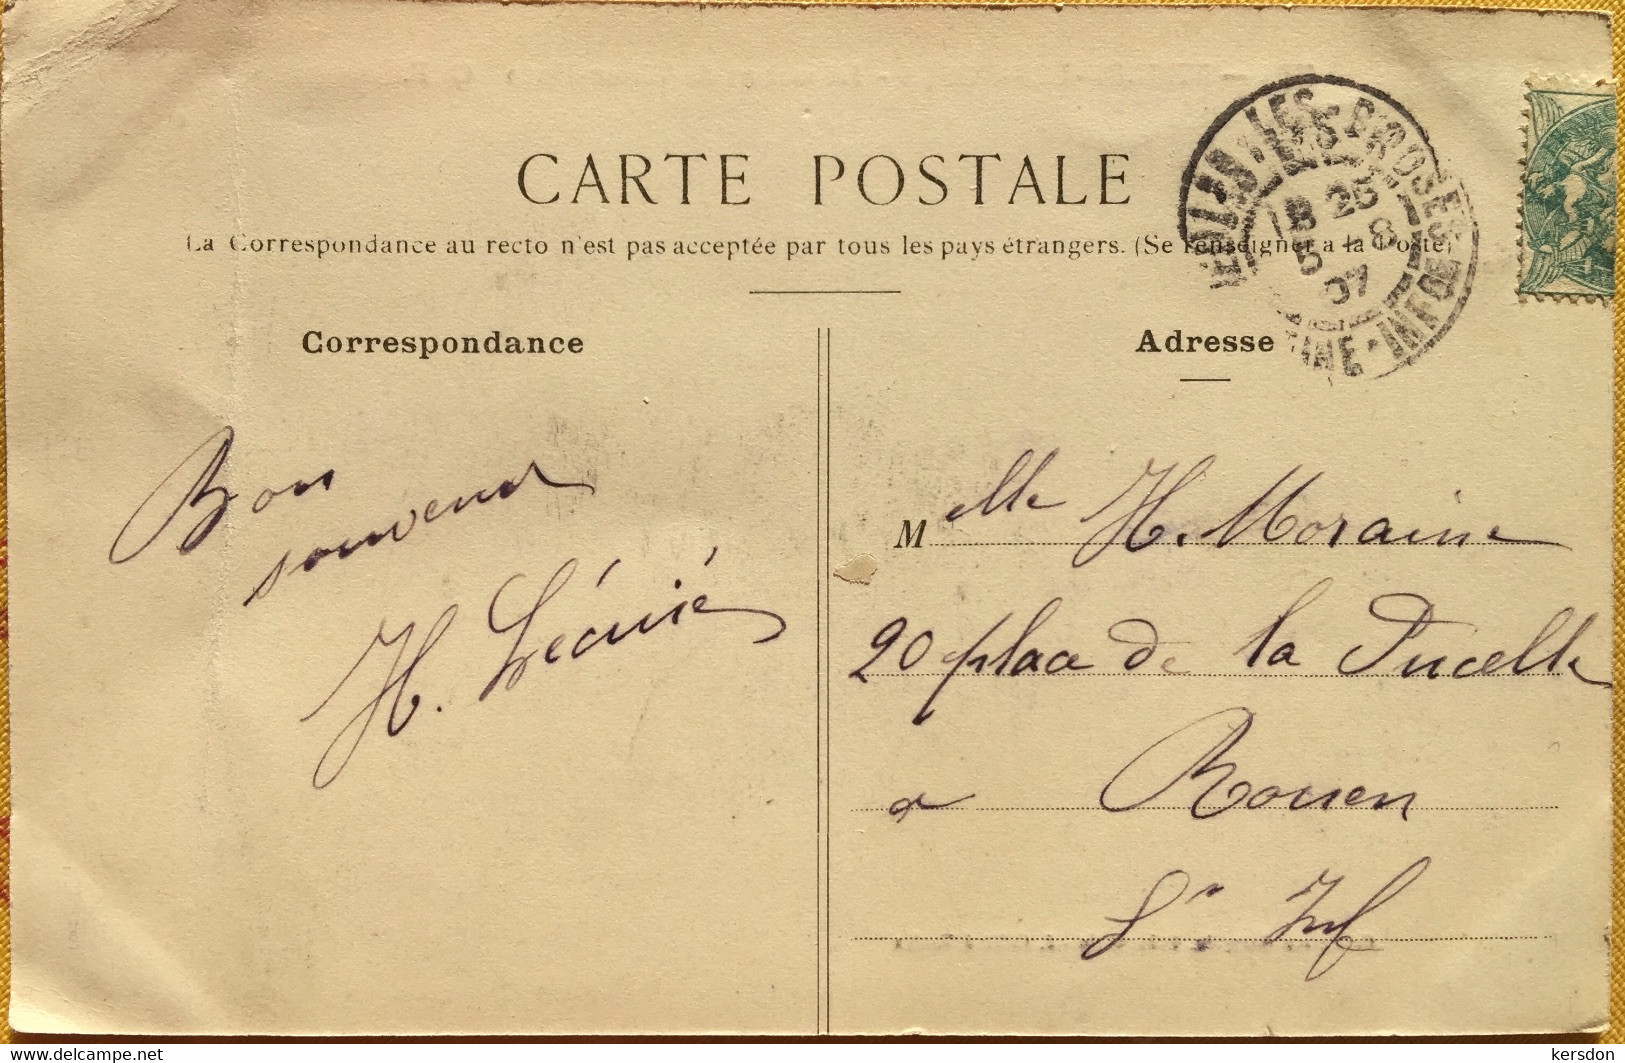 CARTE POSTALE
La Correspondance au recto n'est pas acceptée par tous les pays étrangers. (Se renseigner a la Poste)
Correspondance
Bon
souvenir
H. Lécuié
Adresse
Melle H. Moraine
20 place de la Pucelle
a Rouen
Sre Inf
LES-BROSES
25
8
07
INE-INFRE
kersdon